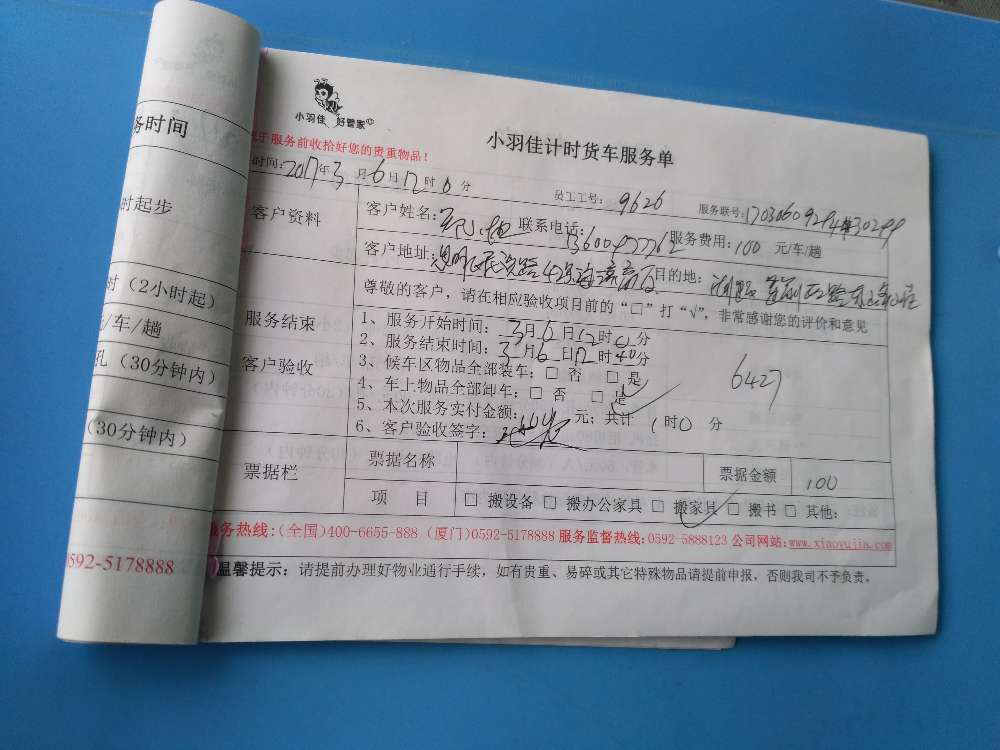 务时间
时起步
时（2小时起）
元/车/趟
（30分钟内）
（30分钟内）
0592-5178888
小羽佳 好管家
小羽佳计时货车服务单
于服务前收拾好您的贵重物品！
时间：2017年3月6日12时0分
员工工号：9626
服务联号：
客户资料
客户姓名：
联系电话：
服务费用：100 元/车/趟
客户地址：
目的地：
尊敬的客户，请在相应验收项目前的“□”打“√”，非常感谢您的评价和意见
服务结束
客户验收
1、服务开始时间：3月6日12时0分
2、服务结束时间：3月6日12时40分
3、候车区物品全部装车：□ 否 □ 是
4、车上物品全部卸车：□ 否 □ 是
6427
5、本次服务实付金额： 元；共计 1时0分
6、客户验收签字：
票据栏
票据名称
票据金额
100
项 目
□ 搬设备 □ 搬办公家具 □ 搬家具 □ 搬书 □ 其他：
服务热线：（全国）400-6655-888（厦门）0592-5178888 服务监督热线：0592-5888123 公司网站：www.xiaoyujia.com
温馨提示：请提前办理好物业通行手续，如有贵重、易碎或其它特殊物品请提前申报，否则我司不予负责。